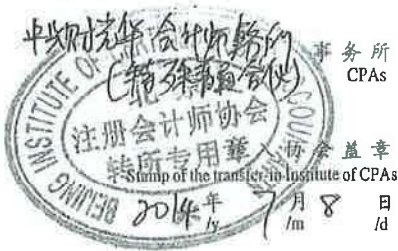 中兴财光华会计师事务所 事务所
(特殊普通合伙) CPAs
BEIJING INSTITUTE OF
注册会计师协会
转所专用章 协会盖章
Stamp of the transfer-in Institute of CPAs
2014年 7月 8日
/y /m /d